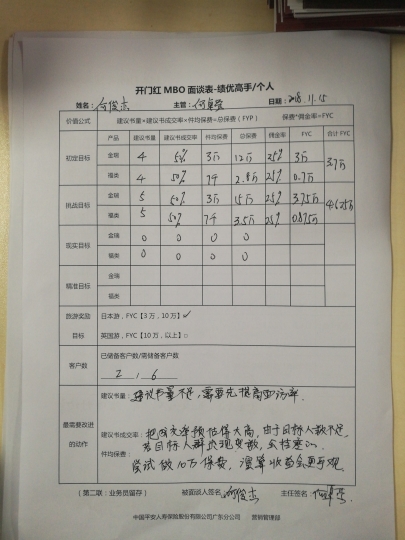 开门红 MBO 面谈表-绩优高手/个人
姓名： 何俊杰 主管： 日期：2018.11.15
价值公式 建议书量*建议书成交率*件均保费=总保费（FYP） 保费*佣金率=FYC
产品 建议书量 建议书成交率 件均保费 总保费 佣金率 FYC 合计 FYC
初定目标 金瑞 4 50% 3万 12万 25% 3万 3.7万
福类 4 50% 7千 2.8万 25% 0.7万
挑战目标 金瑞 5 50% 3万 15万 25% 3.75万 4.625万
福类 5 50% 7千 3.5万 25% 0.875万
现实目标 金瑞 0 0 0 0
福类 0 0 0 0
精准目标 金瑞
福类
旅游奖励 日本游，FYC【3 万，10 万】✓
目标 英国游，FYC【10 万，以上】□
客户数 已储备客户数/需储备客户数
2 1 6
最需要改进的动作 建议书量： 建议书量不足，需要先提高面访率
建议书成交率： 把成交率预估得太高，由于目标人数不足，
若目标人群出现变数，会
件均保费： 尝试做10万保费，
（第二联：业务员留存） 被面谈人签名 何俊杰 主任签名：
中国平安人寿保险股份有限公司广东分公司 营销管理部